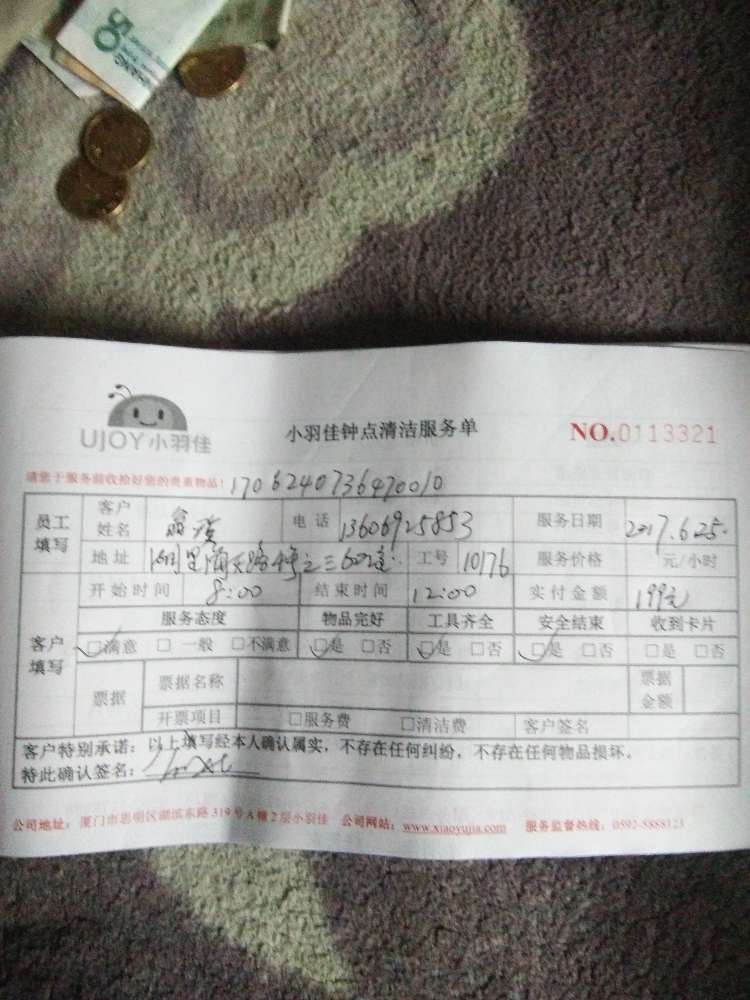 50
UJOY小羽佳
小羽佳钟点清洁服务单
NO.0113321
请您于服务前收拾好您的贵重物品！
1706240736470010
员工填写 客户姓名 电话 13606925853 服务日期 2017.6.25.
地址 工号 10176 服务价格 元/小时
开始时间 8:00 结束时间 12:00 实付金额 199元
客户填写 服务态度 物品完好 工具齐全 安全结束 收到卡片
□满意 □一般 □不满意 □是 □否 □是 □否 □是 □否 □是 □否
票据 票据名称 票据金额
开票项目 □服务费 □清洁费 客户签名
客户特别承诺：以上填写经本人确认属实，不存在任何纠纷，不存在任何物品损坏。
特此确认签名：
公司地址：厦门市思明区湖滨东路319号A幢2层小羽佳 公司网站：www.xiaoyujia.com 服务监督热线：0592-5888123